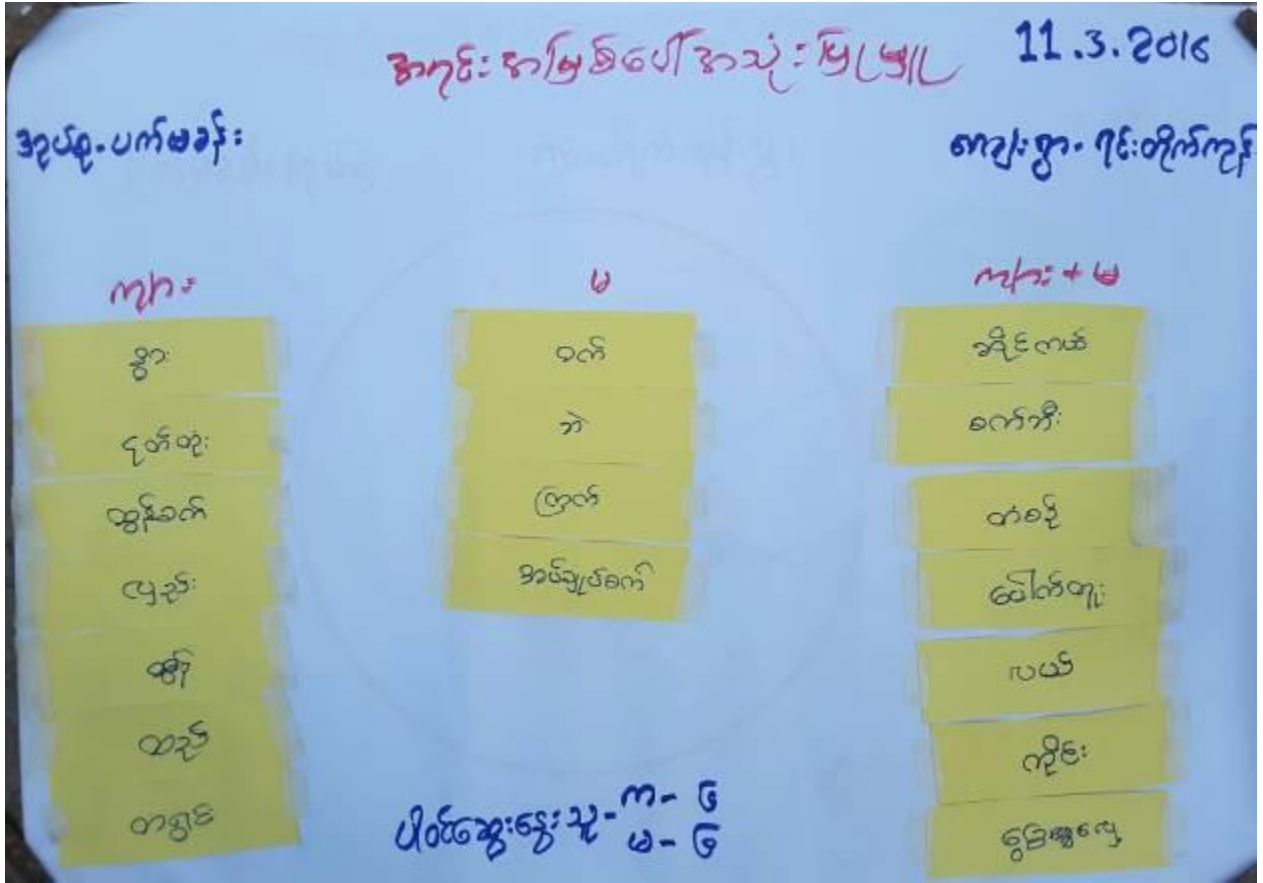 အရင်းအမြစ်ပေါ်အသုံးပြုမှု
11.3.2016
အုပ်စု-ပက်မခန်း
ကျေးရွာ-ရင်းတိုက်ကုန်း
ကျား
နွား
ငုတ်တုံး
ထွန်ခတ်
လှည်း
ထွန်
ထည်
တရွင်း
မ
ဝက်
ဘဲ
ကြက်
အပ်ချုပ်စက်
ကျား+မ
ဆိုင်ကယ်
စက်ဘီး
တံစဉ်
ပေါက်တူး
လယ်
ကိုင်း
ခြွေလှေ့
ပါဝင်ဆွေးနွေးသူ-က-၆
မ-၆